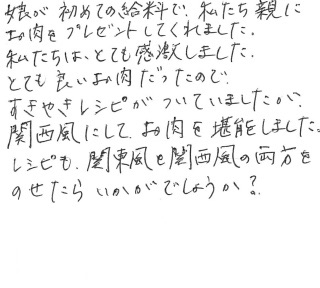 娘が初めての給料で、私たち親に
お肉をプレゼントしてくれました。
私たちは、とても感激しました。
とても良いお肉だったので、
すきやきレシピがついていましたが、
関西風にして、お肉を堪能しました。
レシピも、関東風と関西風の両方を
のせたらいかがでしょうか?